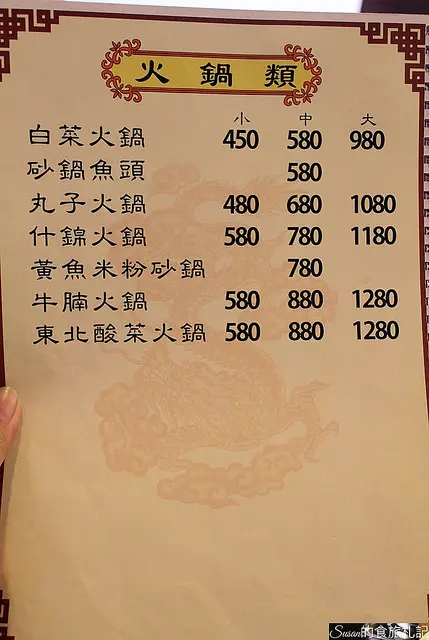 火鍋類
小 中 大
白菜火鍋 450 580 980
砂鍋魚頭 580
丸子火鍋 480 680 1080
什錦火鍋 580 780 1180
黃魚米粉砂鍋 780
牛腩火鍋 580 880 1280
東北酸菜火鍋 580 880 1280
Susan的食旅札記